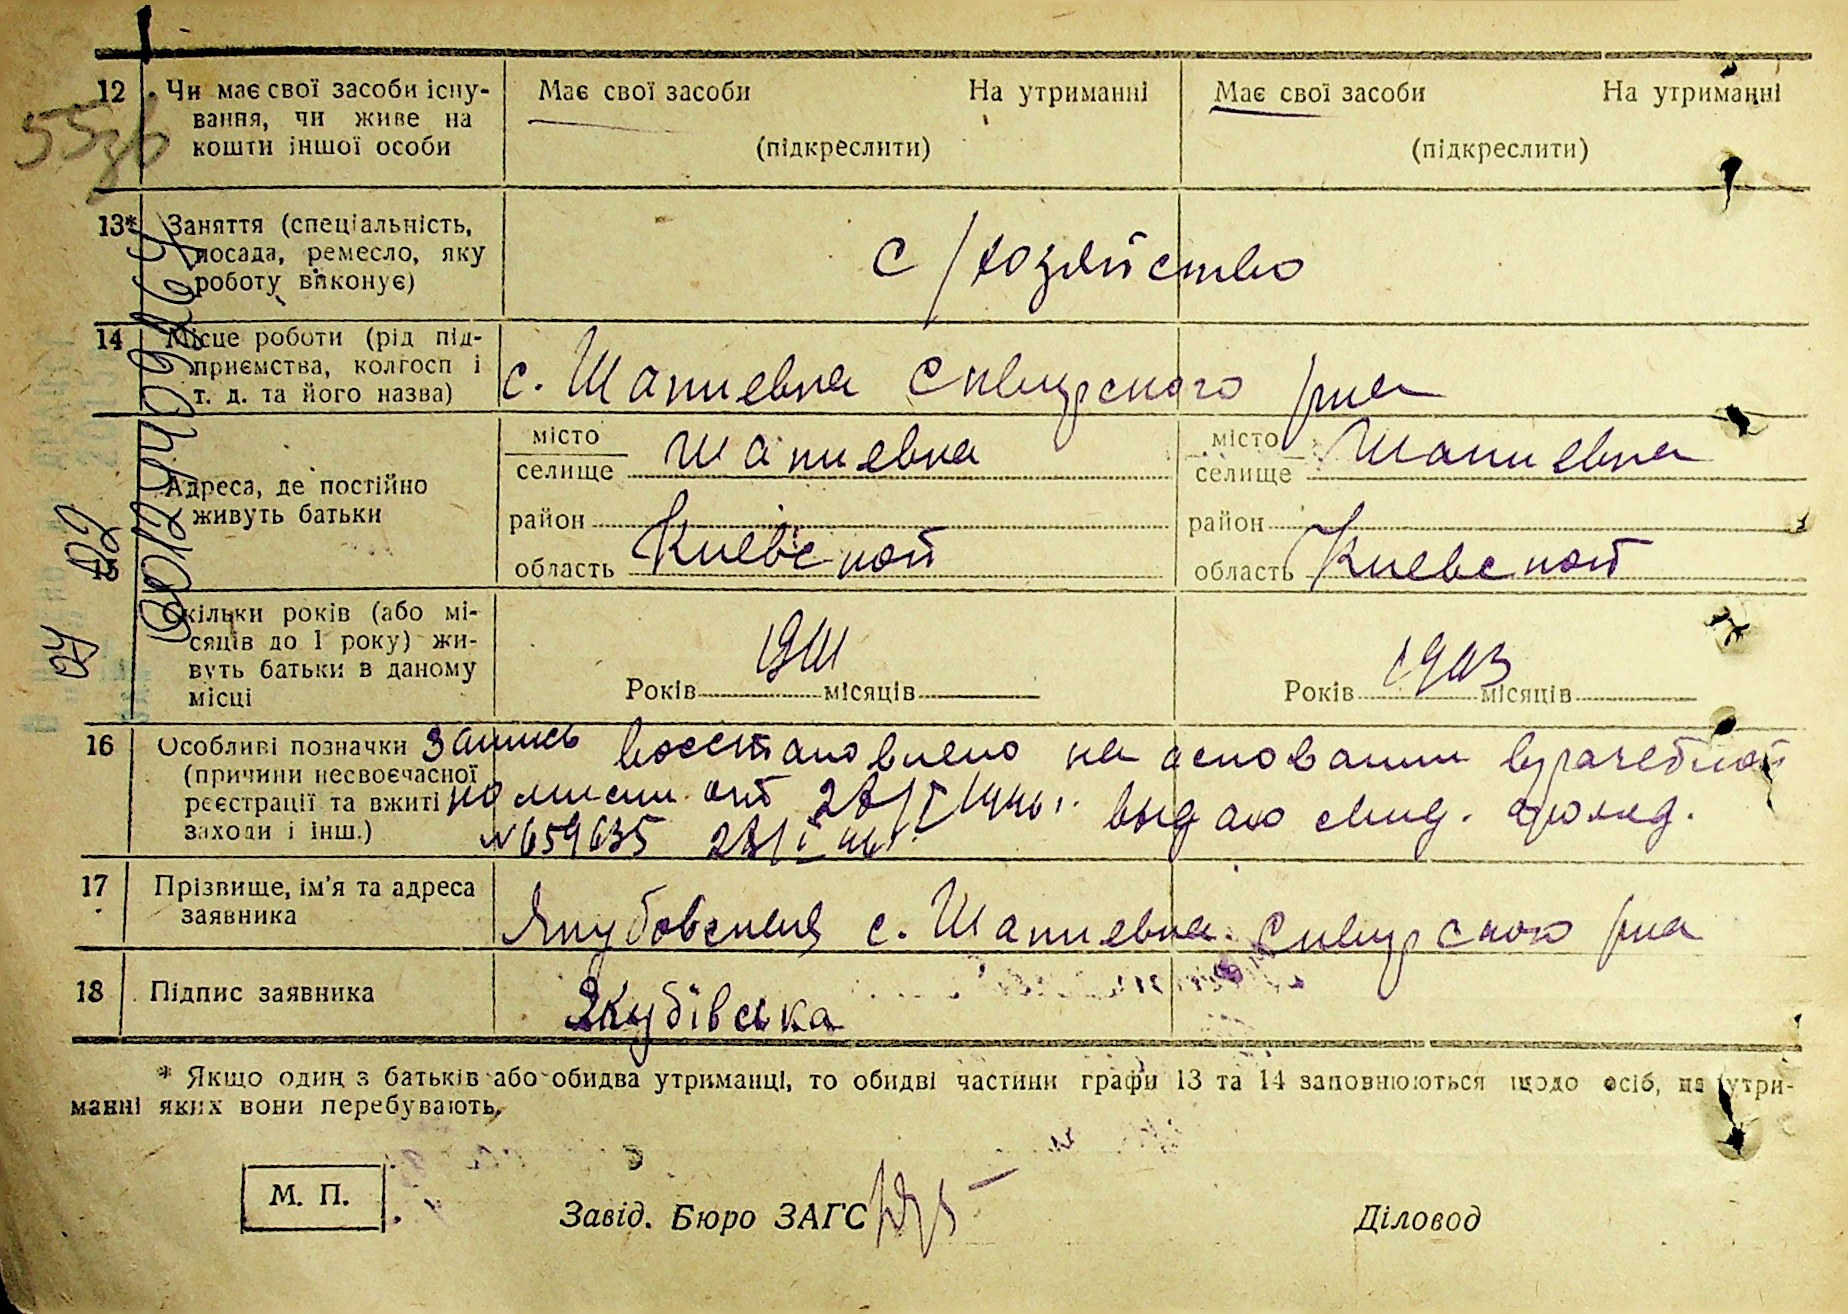 12 Чи має свої засоби існу- Має свої засоби На утриманні Має свої засоби На утриманні
вання, чи живе на
кошти іншої особи (підкреслити) (підкреслити)
13* Заняття (спеціальність,
посада, ремесло, яку с/хозяйство
роботу виконує)
14 Місце роботи (рід під-
приємства, колгосп і с. Шапиевка Сквирского р-на
т. д. та його назва)
місто Шапиевка місто Шапиевка
селище селище
Адреса, де постійно
живуть батьки район район
15 область Киевской область Киевской
Скільки років (або мі-
сяців до 1 року) жи- 1903
вуть батьки в даному Років місяців Років місяців
місці
16 Особливі позначки Запись восстановлено на основании врачебной
(причини несвоєчасної
реєстрації та вжиті от 28/I 1946г. выдано свид.
заходи і інш.) №659635 28/I 46г.
17 Прізвище, ім'я та адреса
заявника с. Шапиевка Сквирского р-на
18 Підпис заявника Якубівська
* Якщо один з батьків або обидва утриманці, то обидві частини графи 13 та 14 заповнюються щодо осіб, на утри-
манні яких вони перебувають.
М. П. Завід. Бюро ЗАГС Діловод